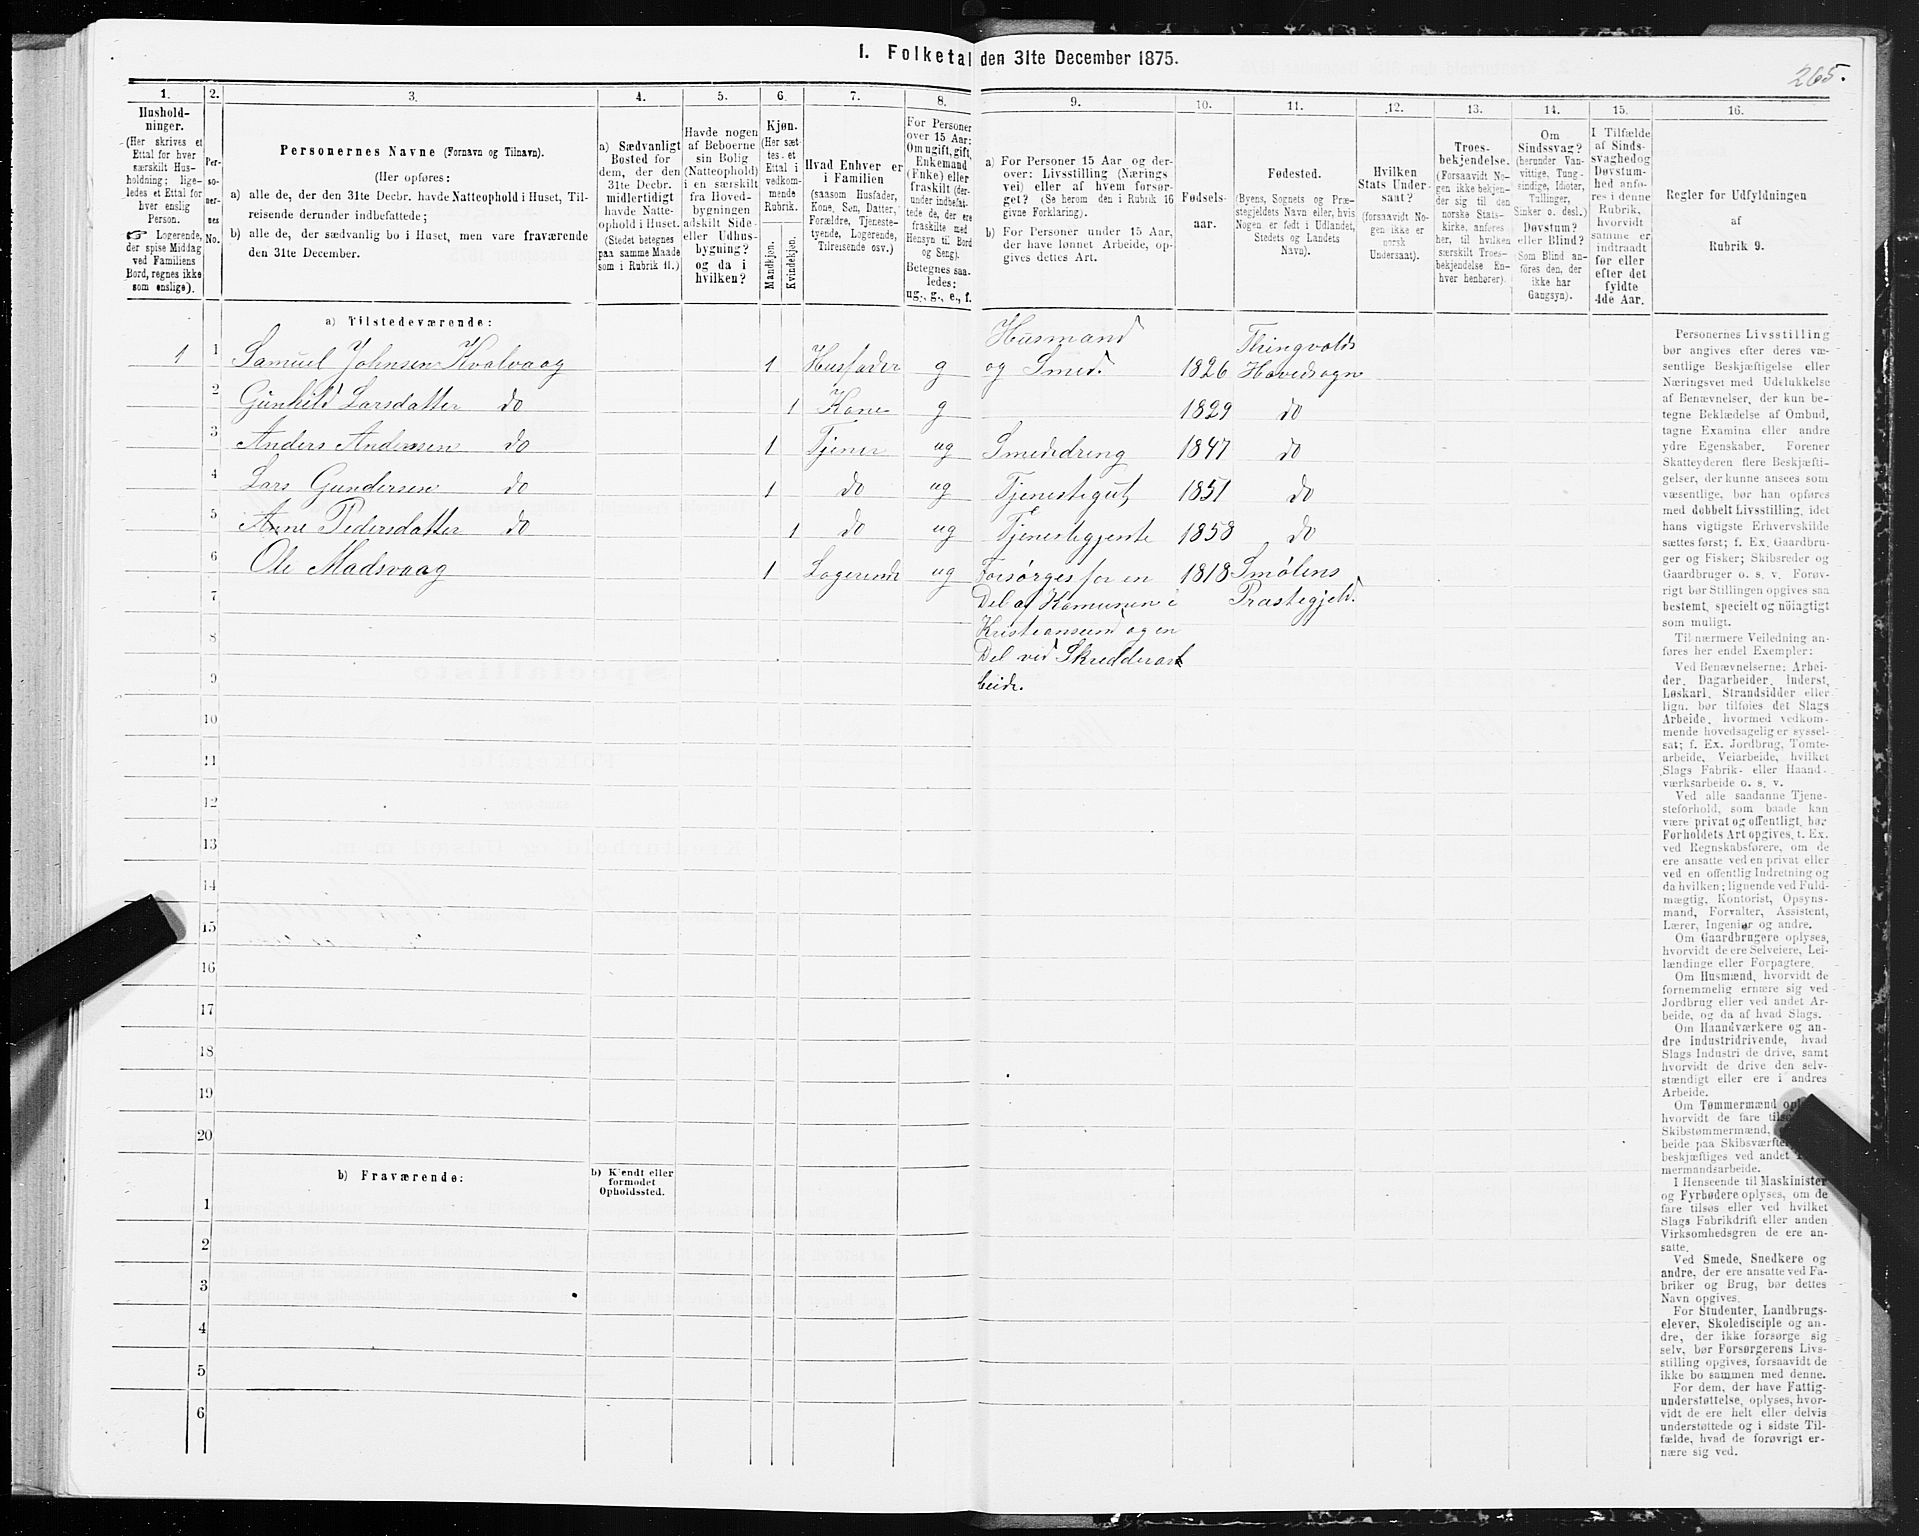 I. Folketal den 31te December 1875.
265.
1. 2. 3. 4. 5. 6. 7. 8. 9. 10. 11. 12. 13. 14. 15. 16.
Hushold-
ninger.
(Her skrives et
Ettal for hver
særskilt Hus-
holdning; lige-
ledes et Ettal for
hver enslig
Person.
☞ Logerende,
der spise Middag
ved Familiens
Bord, regnes ikke
som enslige).
Per-
so-
ner-
nes
No.
Personernes Navne (Fornavn og Tilnavn).
(Her opføres:
a) alle de, der den 31te Decbr. havde Natteophold i Huset, Til-
reisende derunder indbefattede;
b) alle de, der sædvanlig bo i Huset, men vare fraværende
den 31te December.
a) Sædvanligt
Bosted for
dem, der den
31te Decbr.
midlertidigt
havde Natte-
ophold i Huset.
(Stedet betegnes
paa samme Maade
som i Rubrik 11.)
Havde nogen
af Beboerne
sin Bolig
(Natteophold)
i en særskilt
fra Hoved-
bygningen
adskilt Side-
eller Udhus-
bygning?
og da i
hvilken?
Kjøn.
(Her sæt-
tes et
Ettal i
vedkom-
mende
Rubrik.
Mandkjøn.
Kvindekjøn.
Hvad Enhver er
i Familien
(saasom Husfader,
Kone, Søn, Datter,
Forældre, Tjeneste-
tyende, Logerende,
Tilreisende osv.)
For Personer
over 15 Aar:
Om ugift, gift,
Enkemand
(Enke) eller
fraskilt (der-
under indbefat-
tede de, der ere
fraskilte med
Hensyn til Bord
og Seng).
Betegnes saa-
ledes:
ug., g., e., f.
a) For Personer 15 Aar og der-
over: Livsstilling (Nærings
vei) eller af hvem forsør-
get? (Se herom den i Rubrik 16
givne Forklaring).
b) For Personer under 15 Aar,
der have lønnet Arbeide, op-
gives dettes Art.
Fødsels-
aar.
Fødested.
(Byens, Sognets og Præ-
stegjeldets Navn eller, hvis
Nogen er født i Udlandet,
Stedets og Landets
Navn).
Hvilken
Stats Under-
saat?
(forsaavidt No-
gen ikke er
norsk
Undersaat).
Troes-
bekjendelse.
(Forsaavidt No-
gen ikke bekjen-
der sig til den
norske Stats-
kirke, anføres
her, til hvilken
særskilt Troes-
bekjendelse En-
hver henhører).
Om
Sindssvag?
(herunder Van-
vittige, Tung-
sindige, Idioter,
Tullinger,
Sinker o. desl.)
Døvstum?
eller Blind?
(Som Blind an-
føres den, der
ikke har
Gangsyn).
I Tilfælde
af Sinds-
svaghed og
Døvstum-
hed anfø-
res i denne
Rubrik,
hvorvidt
samme er
indtraadt
før eller
efter det
fyldte
4de Aar.
Regler for Udfyldningen
af
Rubrik 9.
a) Tilstedeværende:
1 1 Samuel Johnsen Kvalvaag 1 Husfader g Husmand og Smed. 1826 Thingvolds Hovedsogn
2 Gunhild Larsdatter do 1 Kone g 1829 do
3 Anders Andersen do 1 Tjener ug Smededreng 1847 do
4 Lars Gundersen do 1 do ug Tjenestegut, 1851 do
5 Anne Pedersdatter do 1 do ug Tjenestegjente 1858 do
6 Ole Madsvaag 1 Logerende ug Forsørges for en 1818 Smølens
7 Del af Komunen i Præstegjeld.
8 Kristiansund og en
Del ved Skrædderar
9 beide.
10
11
12
13
14
15
16
17
18
19
20
b) Fraværende:
b) Kjendt eller
formodet
Opholdssted.
1
2
3
4
5
6
Personernes Livsstilling
bør angives efter deres væ-
sentlige Beskjæftigelse eller
Næringsvei med Udelukkelse
af Benævnelser, der kun be-
tegne Beklædelse af Ombud,
tagne Examina eller andre
ydre Egenskaber. Forener
Skatteyderen flere Beskjæfti-
gelser, der kunne ansees som
væsentlige, bør han opføres
med dobbelt Livsstilling, idet
hans vigtigste Erhvervskilde
sættes først; f. Ex. Gaardbru-
ger og Fisker; Skibsreder og
Gaardbruger o. s. v. Forøv-
rigt bør Stillingen opgives saa
bestemt, specielt og nøiagtigt
som muligt.
Til nærmere Veiledning an-
føres her endel Exempler:
Ved Benævnelserne: Arbei-
der, Dagarbeider, Inderst,
Løskarl, Strandsidder eller
lign. bør tilføies det Slags
Arbeide, hvormed vedkom-
mende hovedsagelig er syssel-
sat; f. Ex. Jordbrug, Tomte-
arbeide, Veiarbeide, hvilket
Slags Fabrik- eller Haand-
værksarbeide o. s. v.
Ved alle saadanne Tjene-
steforhold, som baade kan
være privat og offentligt, bør
Forholdets Art opgives, t. Ex.
ved Regnskabsførere, om de
ere ansatte ved en privat eller
ved en offentlig Indretning og
da hvilken; lignende ved Fuld-
mægtig, Kontorist, Opsyns-
mand, Forvalter, Assistent,
Lærer, Ingeniør og andre.
Om Gaardbrugere oplyses,
hvorvidt de ere Selveiere, Lei-
lændinge eller Forpagtere.
Om Husmænd, hvorvidt de
fornemmelig ernære sig ved
Jordbrug eller ved andet Ar-
beide, og da af hvad Slags.
Om Haandværkere og an-
dre Industridrivende, hvad
Slags Industri de drive, samt
hvorvidt de drive den selv-
stændigt eller ere i andres
Arbeide.
Om Tømmermænd
hvorvidt de fare
Skibstømmermænd,
beide paa
beskjæftiges ved andet
mermandsarbeide.
I Henseende til Maskinister
og Fyrbødere oplyses, om de
fare tilsøs eller ved hvilket
Slags Fabrikdrift eller anden
Virksomhedsgren de ere an-
satte.
Ved Smede, Snedkere og
andre, der ere ansatte ved Fa-
briker og Brug, bør dettes
Navn opgives.
For Studenter, Landbrugs-
elever, Skoledisciple og an-
dre, der ikke forsørge sig
selv, bør Forsørgerens Livs-
stilling opgives, forsaavidt de
ikke bo sammen med denne.
For dem, der have Fattig-
understøttelse, oplyses, hvor-
vidt de ere helt eller delvis
understøttede og i sidste Til-
fælde, hvad de forøvrigt er-
nære sig ved.